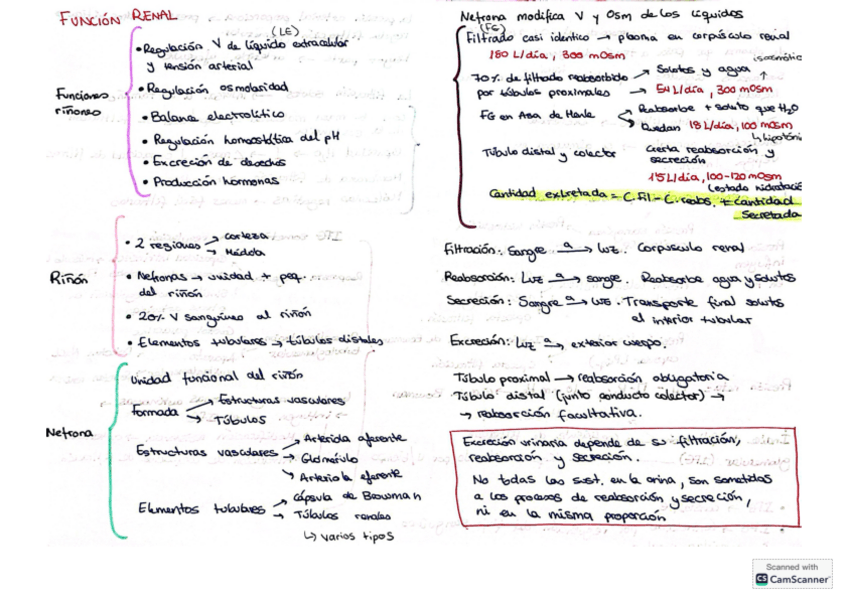 FUNCIÓN RENAL
Funciones riñones
• Regulación V de líquido extracelular (LE)
y tensión arterial
• Regulación osmolaridad
• Balance electrolítico
• Regulación homostática del pH
• Excreción de desechos
• Producción hormonas
Riñón
• 2 regiones → corteza
→ Médula
• Nefronas → unidad + peq.
del riñón
• 20% V sanguíneo al riñón
• Elementos tubulares → túbulos distales
Nefrona
Unidad funcional del riñón
Formada → Estructuras vasculares
→ Túbulos
Estructuras vasculares → Arteriola aferente
→ Glomérulo
→ Arteriola eferente
Elementos tubulares → cápsula de Bowman
→ Túbulos renales
↳ varios tipos
Nefrona modifica V y Osm de los líquidos
(FG)
Filtrado casi identico → plasma en corpúsculo renal
180 L/día, 300 mOsm
isosmótic
70% de filtrado reabsorbido → Solutos y agua ↑
por túbulos proximales → 54 L/día, 300 mOsm
FG en Asa de Henle → Reabsorbe + soluto que H2O
→ Quedan 18 L/día, 100 mOsm
↳ hipotóni
Túbulo distal y colector
Cierta reabsorción y
secreción
1'5 L/día, 100-120 mOsm
(estado hidratació
Cantidad excretada = C. Fil - C. reabs. + cantidad
secretada
Filtración: Sangre a→ luz. Corpusculo renal
Reabsorción: Luz a→ sangre. Reabsorbe agua y solutos
Secreción: Sangre a→ luz. Transporte final solutos
el interior tubular
Excreción: Luz a→ exterior cuerpo.
Túbulo proximal → reabsorción obligatoria
Túbulo distal (junto conducto colector) →
→ reabsorción facultativa.
Excreción urinaria depende de su filtración,
reabsorción y secreción.
No todas las sust. en la orina, son sometidas
a los procesos de reabsorción y secreción,
ni en la misma proporción
Scanned with
CS CamScanner